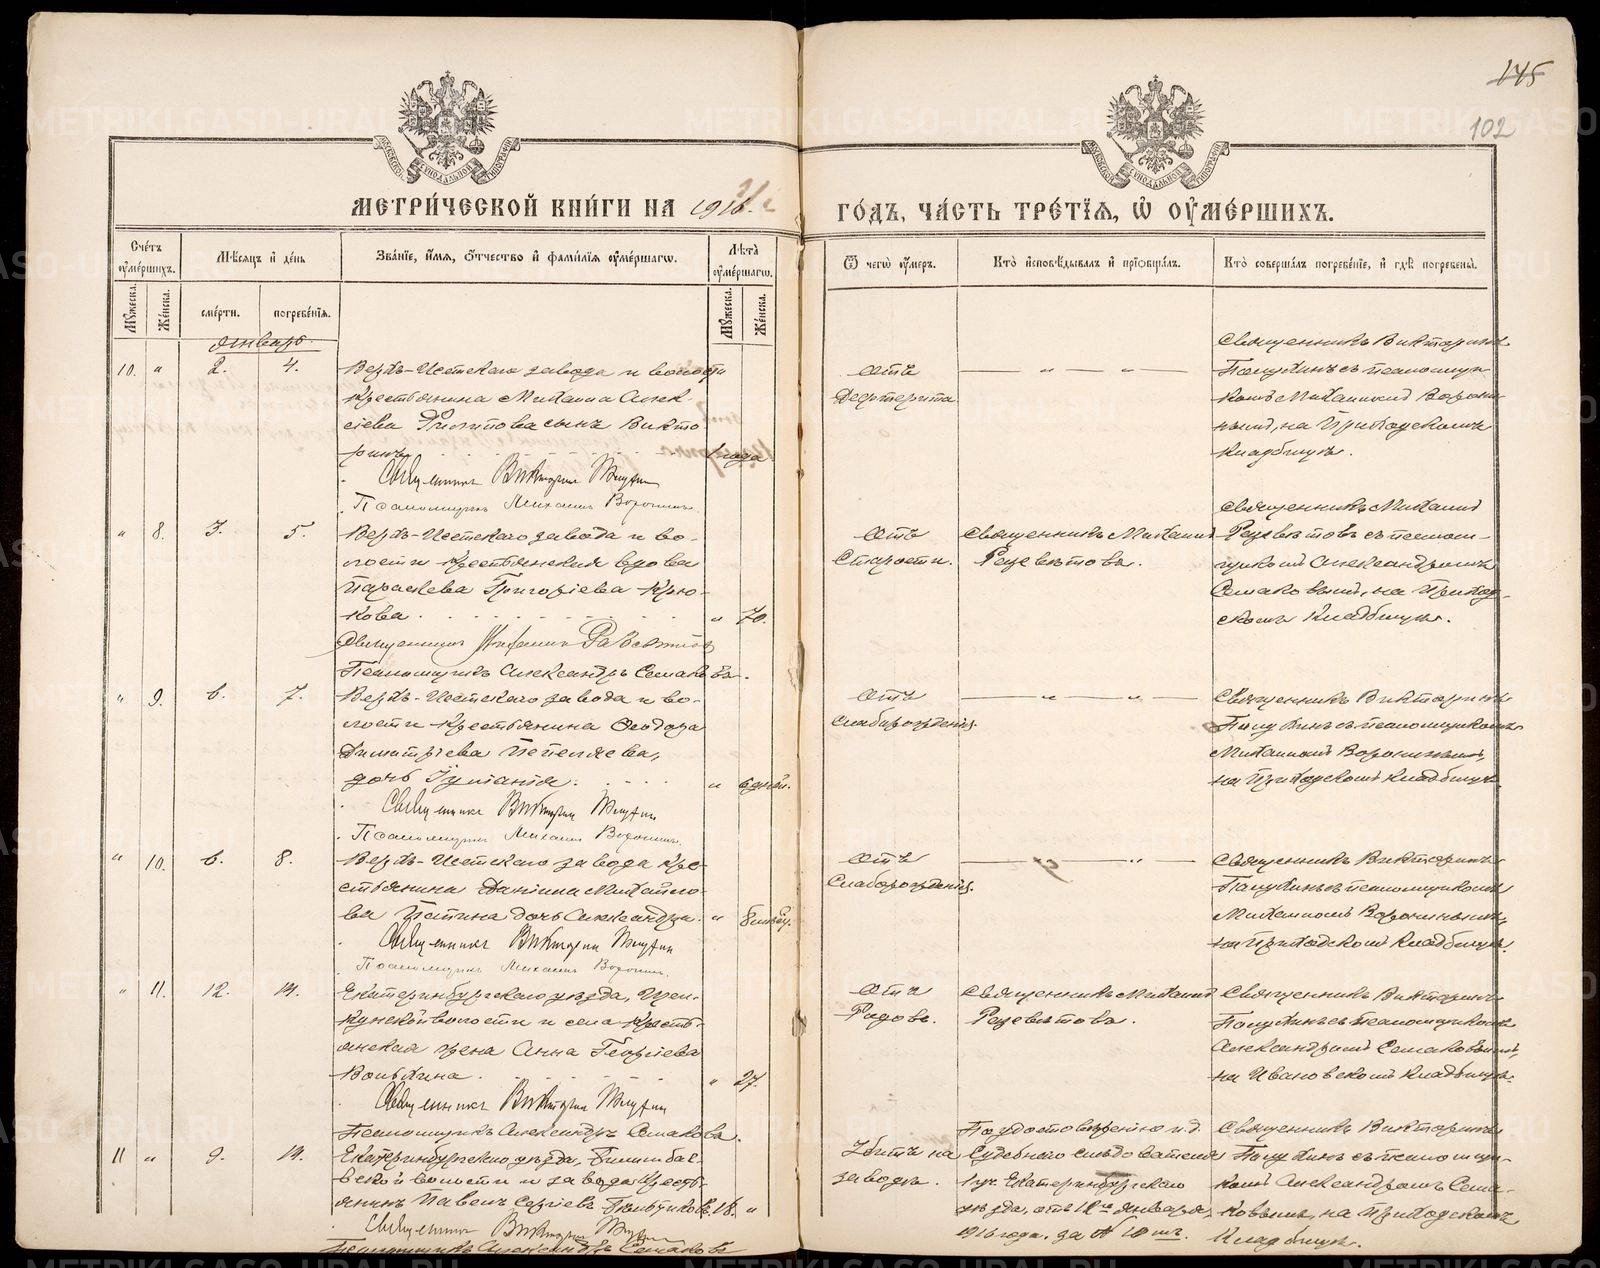 145
102
МЕТРИ́ЧЕСКОЙ КНИ́ГИ НА 1916.
ГО́ДЪ, ЧА́СТЬ ТРЕ́ТІѦ, Ѡ ОУМЕ́РШИХЪ.
Сче́тъ оуме́ршихъ.
Му́жеска.
Же́нска.
Мѣ́сяцъ и де́нь
сме́рти.
погребе́нїѧ.
Зва́нїе, и́мѧ, ѻ́тчество и фами́лїѧ оуме́ршагѡ.
Лѣ́та оуме́ршагѡ.
Му́жеска.
Же́нска.
Ѿ чегѡ̀ оу́меръ.
Кто̀ исповѣ́дывалъ и прїѡбща́лъ.
Кто̀ соверша́лъ погребе́нїе, и гдѣ̀ погребе́ны.
Январь.
10. " 2. 4.
Верхъ-Исетскаго завода и волости
крестьянина Михаила Алек-
сіева Филиппова сынъ Викто-
ринъ 1 года
Священникъ Викторин
Псаломщикъ Михаилъ Воронинъ.
Отъ
Дефтерита
Священникъ Викторинъ
съ псаломщи-
комъ Михаиломъ Ворони-
нымъ, на Приходскомъ
кладбищѣ.
" 8. 3. 5.
Верхъ-Исетскаго завода и во-
лости крестьянская вдова
Параскева Григоріева Крю-
кова " 70.
Священникъ Михаилъ
Псаломщикъ Александръ Семаковъ.
Отъ
Старости.
Священникъ Михаилъ
Священникъ Михаилъ
съ псалом-
щикомъ Александромъ
Семаковымъ, на Приход-
скомъ Кладбищѣ.
" 9. 6. 7.
Верхъ-Исетскаго завода и во-
лости крестьянина Ѳеодора
Димитріева Пепеляева,
дочь Іуліанія. " 6 дней.
Священникъ Викторин
Псаломщикъ Михаилъ Воронинъ.
Отъ
Слаборожденія.
Священникъ Викторинъ
съ псаломщикомъ
Михаиломъ Воронинымъ,
на Приходскомъ кладбищѣ.
" 10. 6. 8.
Верхъ-Исетскаго завода кре-
стьянина Даніила Михайло-
ва дочь Александра. "
Священникъ Викторин
Псаломщикъ Михаилъ Воронинъ.
Отъ
Слаборожденія.
Священникъ Викторинъ
съ псаломщикомъ
Михаиломъ Воронинымъ,
на Приходскомъ кладбищѣ.
" 11. 12. 14.
Екатеринбургскаго уѣзда,
волости и села кресть-
янская жена Анна Георгіева
" 27.
Священникъ Викторин
Псаломщикъ Александръ Семаковъ.
Отъ
Родовъ.
Священникъ Михаилъ
Священникъ Викторинъ
съ псаломщикомъ
Александромъ Семаковымъ,
на Ивановскомъ кладбищѣ.
11 " 9. 14.
Екатеринбургскаго уѣзда, Билимба-
евской волости и завода кресть-
янинъ Павелъ Сергіевъ 18. "
Священникъ Викторин
Псаломщикъ Александръ Семаковъ
Убитъ на
заводѣ.
По удостовѣренію и.д.
Судебнаго слѣдователя
1 уч. Екатеринбургскаго
уѣзда, отъ 12го января
1916 года. за № 10
Священникъ Викторинъ
съ псаломщи-
комъ Александромъ Сема-
ковымъ, на Приходскомъ
Кладбищѣ.
METRIKI.GASO-URAL.RU